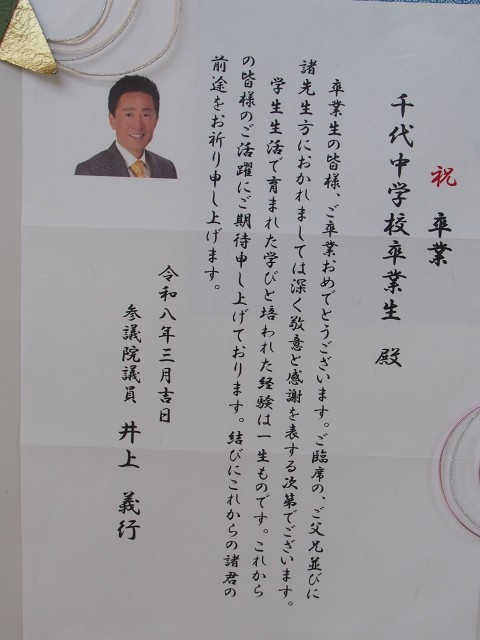 祝 卒業
千代中学校卒業生 殿
卒業生の皆様、ご卒業おめでとうございます。ご臨席の、ご父兄並びに
諸先生方におかれましては深く敬意と感謝を表する次第でございます。
学生生活で育まれた学びと培われた経験は一生ものです。これから
の皆様のご活躍にご期待申し上げております。結びにこれからの諸君の
前途をお祈り申し上げます。
令和八年三月吉日
参議院議員 井上 義行